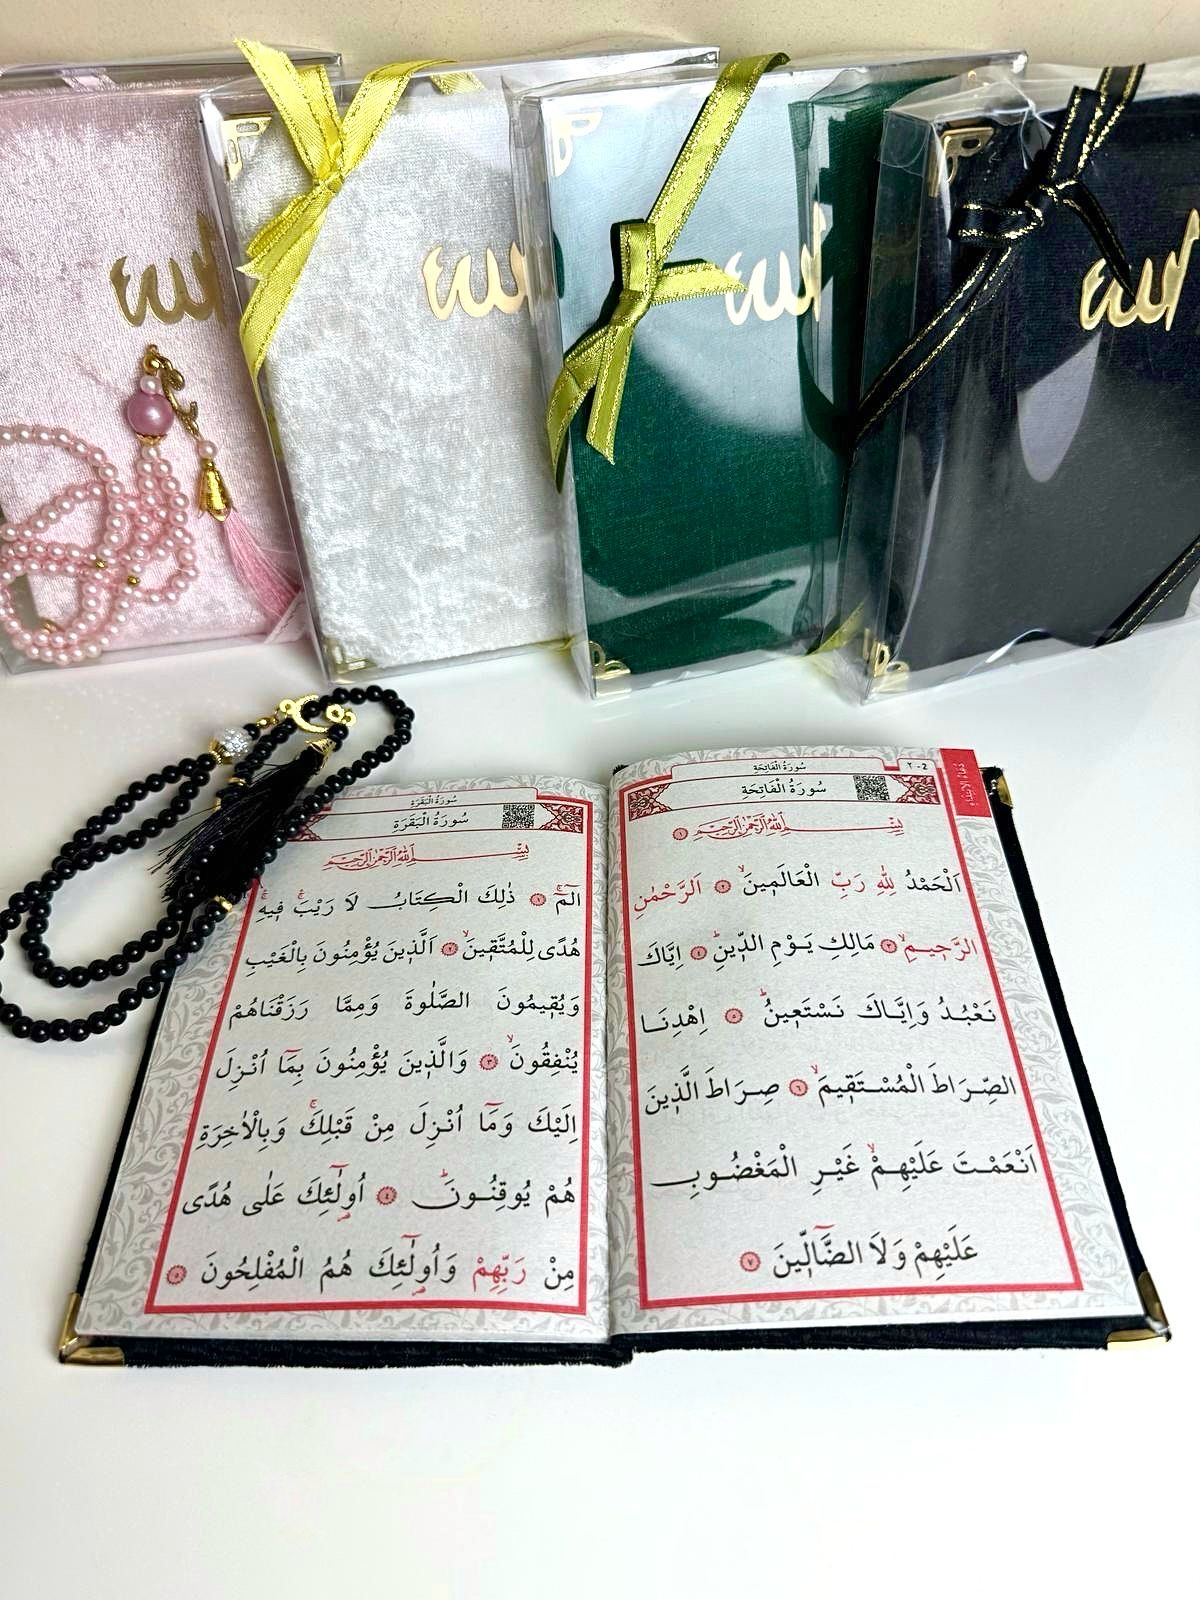 الله
الله
الله
الله
سُورَةُ الْفَاتِحَةِ
٢ - 2
سُورَةُ الْفَاتِحَةِ
بِسْمِ اللهِ الرَّحْمٰنِ الرَّحِيمِ ١
اَلْحَمْدُ لِلّٰهِ رَبِّ الْعَالَمِينَۙ ٢ اَلرَّحْمٰنِ
الرَّحِيمِۙ ٣ مَالِكِ يَوْمِ الدِّينِۜ ٤ اِيَّاكَ
نَعْبُدُ وَاِيَّاكَ نَسْتَعِينُۜ ٥ اِهْدِنَا
الصِّرَاطَ الْمُسْتَقِيمَۙ ٦ صِرَاطَ الَّذِينَ
اَنْعَمْتَ عَلَيْهِمْۙ غَيْرِ الْمَغْضُوبِ
عَلَيْهِمْ وَلَا الضَّٓالِّينَ ٧
سُورَةُ الْبَقَرَةِ
سُورَةُ الْبَقَرَةِ
بِسْمِ اللهِ الرَّحْمٰنِ الرَّحِيمِ
الٓمٓۚ ١ ذٰلِكَ الْكِتَابُ لَا رَيْبَۚ فِيهِۚ
هُدًى لِلْمُتَّقِينَۙ ٢ اَلَّذِينَ يُؤْمِنُونَ بِالْغَيْبِ
وَيُقِيمُونَ الصَّلٰوةَ وَمِمَّا رَزَقْنَاهُمْ
يُنْفِقُونَۙ ٣ وَالَّذِينَ يُؤْمِنُونَ بِمَٓا اُنْزِلَ
اِلَيْكَ وَمَٓا اُنْزِلَ مِنْ قَبْلِكَۚ وَبِالْاٰخِرَةِ
هُمْ يُوقِنُونَۜ ٤ اُو۬لٰٓئِكَ عَلٰى هُدًى
مِنْ رَبِّهِمْ وَاُو۬لٰٓئِكَ هُمُ الْمُفْلِحُونَ ٥